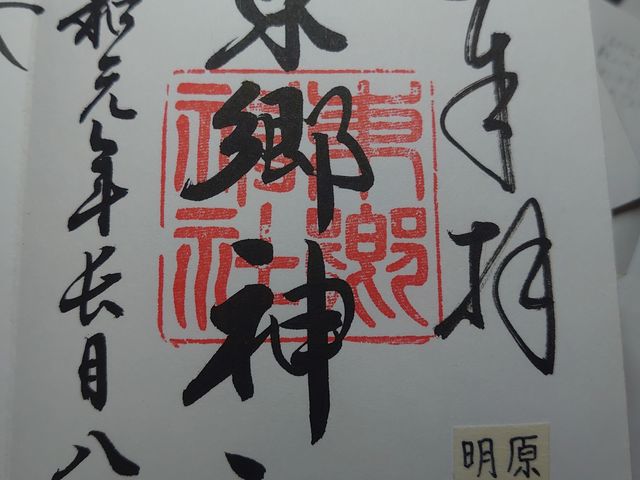 奉拝
東郷神
東郷
神社
和元年長月八
原
明